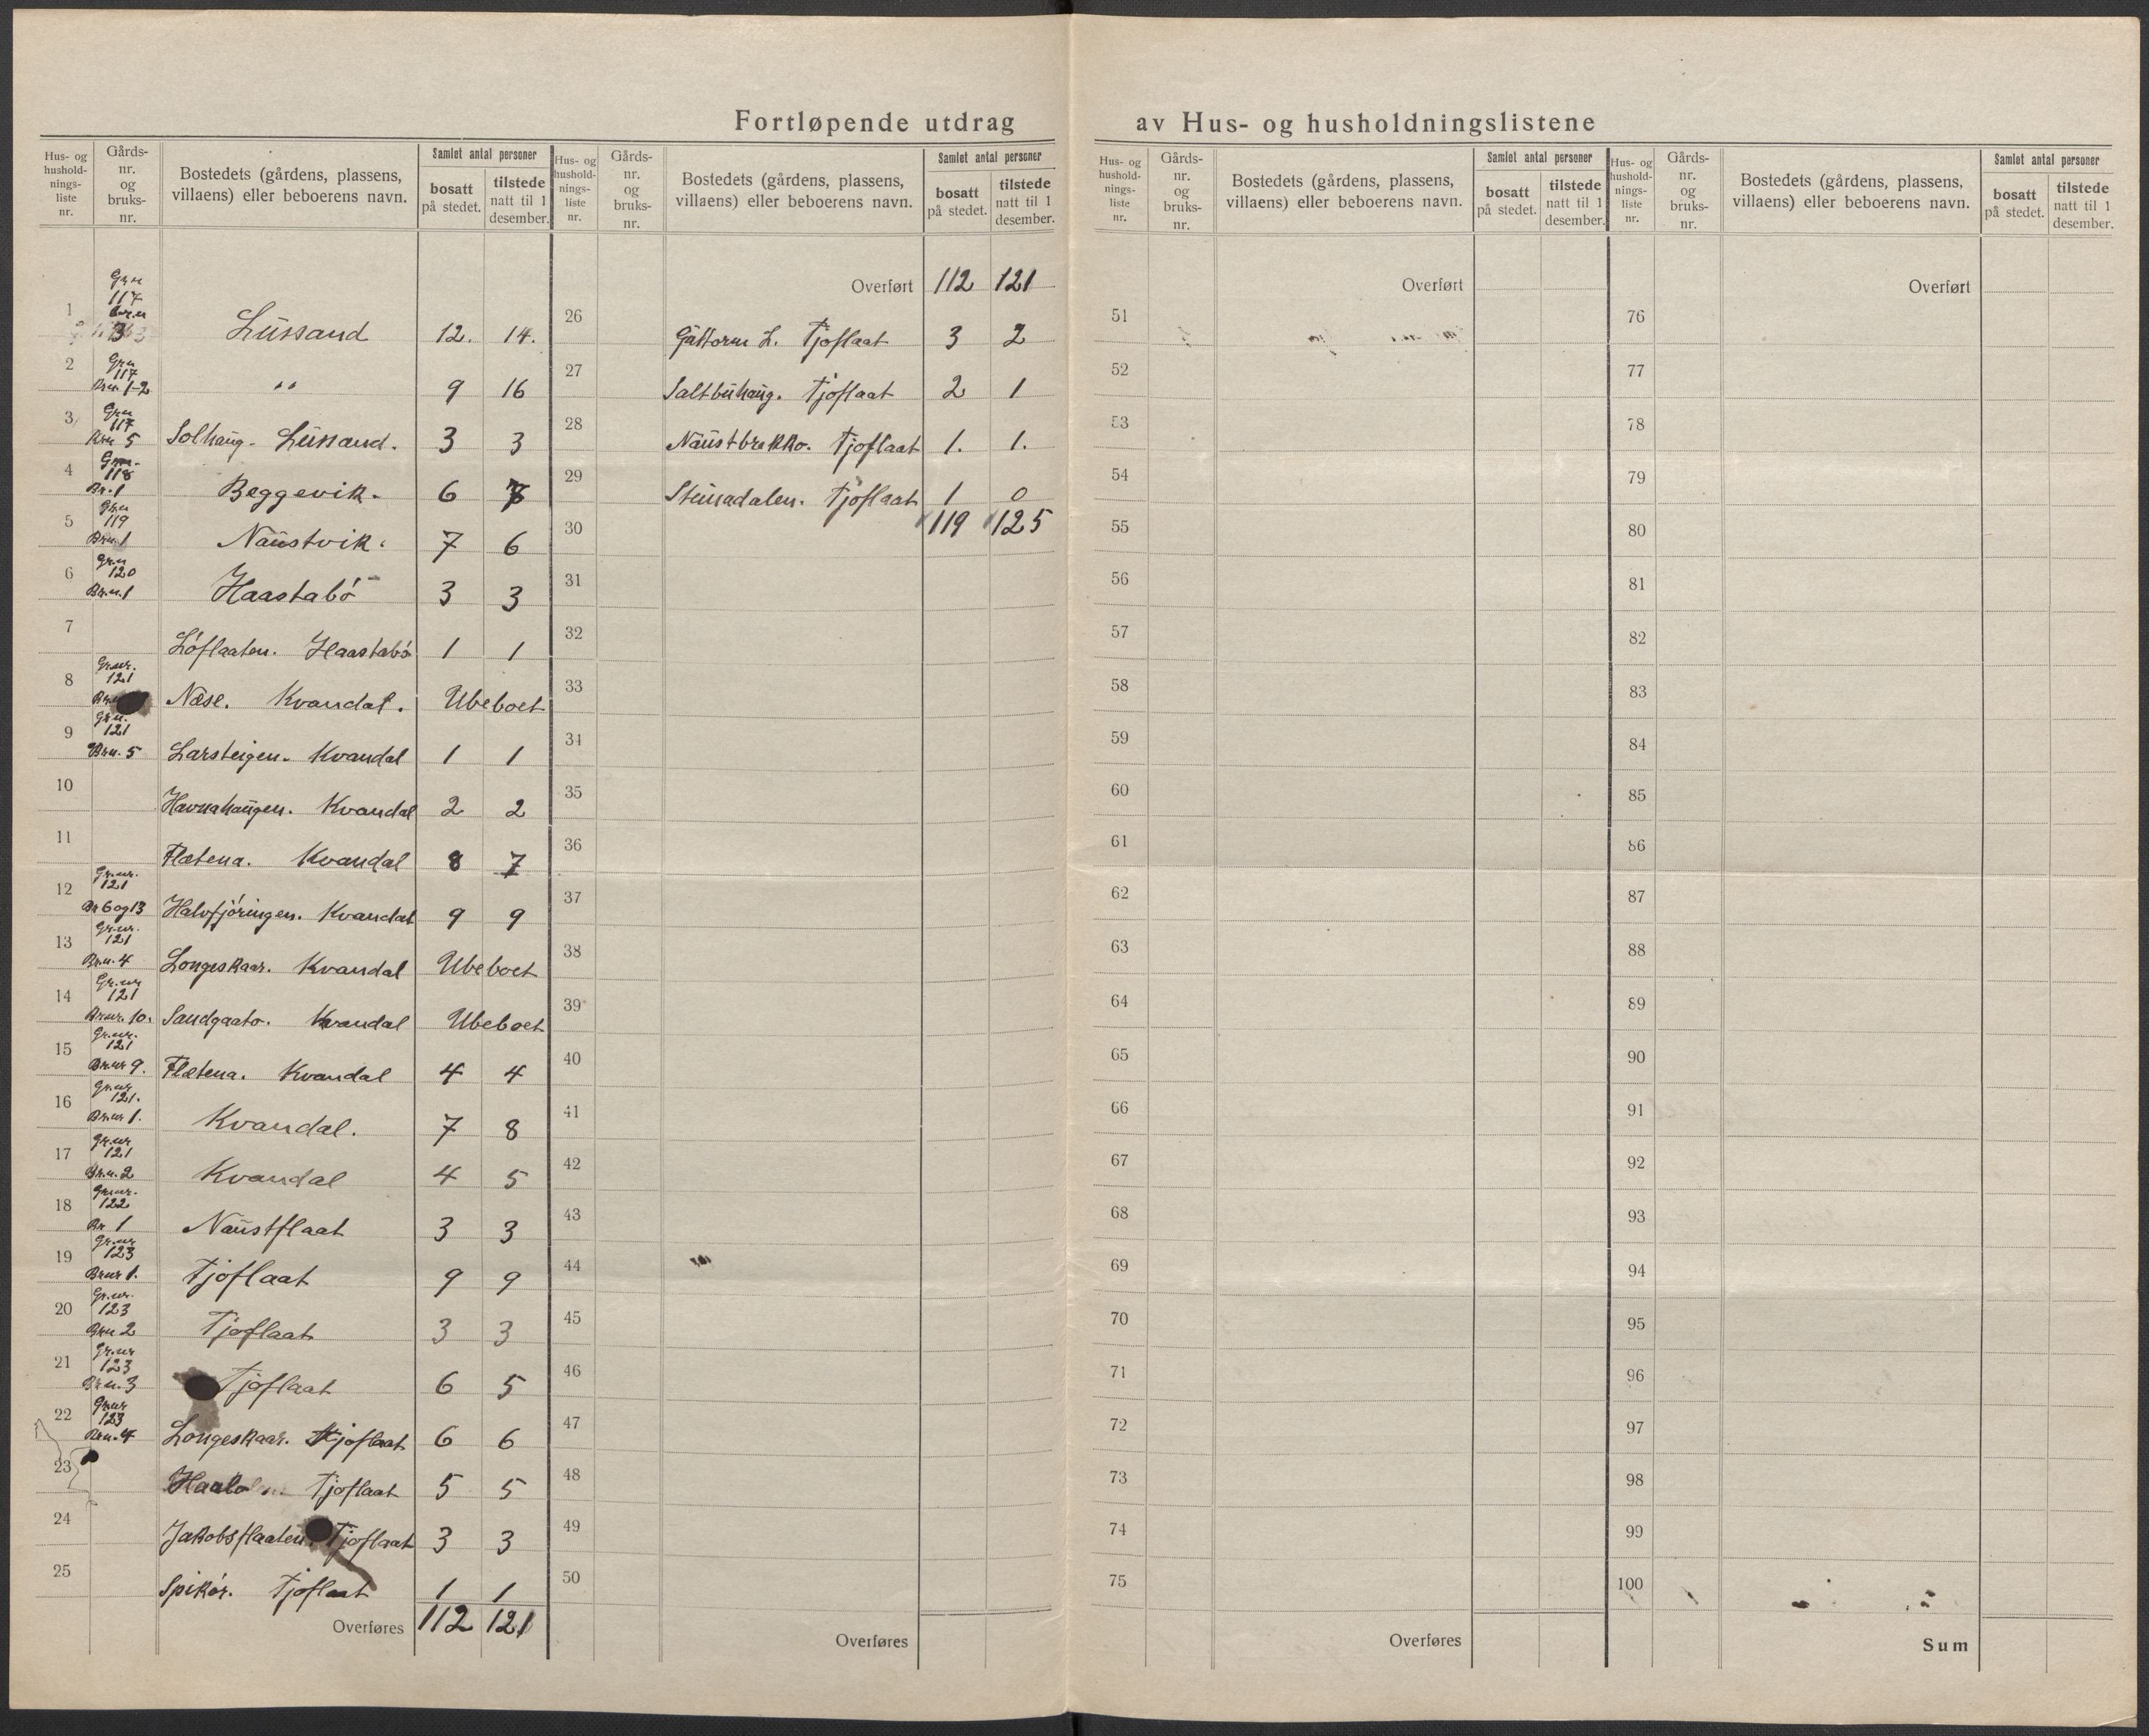 Fortløpende utdrag av Hus- og husholdningslistene
Hus- og hushold-nings-liste nr.
Gårds-nr. og bruks-nr.
Bostedets (gårdens, plassens, villaens) eller beboerens navn.
Samlet antal personer
bosatt på stedet.
tilstede natt til 1 desember.
1 Gr.n 117 Br.n 3 Lussand 12. 14.
2 Grn 117 Brn. 1-2 " 9 16
3 Grn 117 Brn 5 Solhaug. Lussand. 3 3
4 Grn. 118 Br. 1 Beggevik. 6 7
5 Grn 119 Brn. 1 Naustvik. 7 6
6 Gr.n 120 Br.n. 1 Haastabö 3 3
7 Löflaaten. Haastabö 1 1
8 Gr.nr. 121 Næse. Kvandal. Ubeboet
9 Gr.n. 121 Brn. 5 Larsteigen. Kvandal 1 1
10 Havnahaugen. Kvandal 2 2
11 Flætena. Kvandal 8 7
12 Gr.nr. 121 Br 6 og 13 Halvfjöringen. Kvandal 9 9
13 Gr.nr. 121 Br.n. 4 Longeskaar. Kvandal Ubeboet
14 Gr.nr 121 Br.nr. 10. Sandgaato. Kvandal Ubeboet
15 Gr.nr. 121 Br.nr 9. Flætena. Kvandal 4 4
16 Gr.nr 121. Br.nr 1. Kvandal. 7 8
17 Gr.nr 121 Br.n. 2 Kvandal 4 5
18 Gr.nr. 122 Br 1 Naustflaat 3 3
19 Gr.nr 123 Br.nr 1. Tjoflaat 9 9
20 Gr.nr. 123 Brn 2 Tjoflaat 3 3
21 Gr.nr 123 Br.n. 3 Tjoflaat 6 5
22 Gr.nr 123 Brn. 4 Longeskaar. Tjoflaat 6 6
23 Tjoflaat 5 5
24 Jakobsflaaten. Tjoflaat 3 3
25 Spikör. Tjoflaat 1 1
Overføres 112 121
Hus- og hushold-nings-liste nr.
Gårds-nr. og bruks-nr.
Bostedets (gårdens, plassens, villaens) eller beboerens navn.
Samlet antal personer
bosatt på stedet.
tilstede natt til 1 desember.
Overført 112 121
26 Guttorm L. Tjoflaat 3 2
27 Saltbuhaug. Tjoflaat 2 1
28 Naustbrekko. Tjoflaat 1. 1.
29 Steinadalen. Tjoflaat 1 0
119 125
30
31
32
33
34
35
36
37
38
39
40
41
42
43
44
45
46
47
48
49
50
Overføres
Hus- og hushold-nings-liste nr.
Gårds-nr. og bruks-nr.
Bostedets (gårdens, plassens, villaens) eller beboerens navn.
Samlet antal personer
bosatt på stedet.
tilstede natt til 1 desember.
Overført
51
52
53
54
55
56
57
58
59
60
61
62
63
64
65
66
67
68
69
70
71
72
73
74
75
Overføres
Hus- og hushold-nings-liste nr.
Gårds-nr. og bruks-nr.
Bostedets (gårdens, plassens, villaens) eller beboerens navn.
Samlet antal personer
bosatt på stedet.
tilstede natt til 1 desember.
Overført
76
77
78
79
80
81
82
83
84
85
86
87
88
89
90
91
92
93
94
95
96
97
98
99
100
Sum